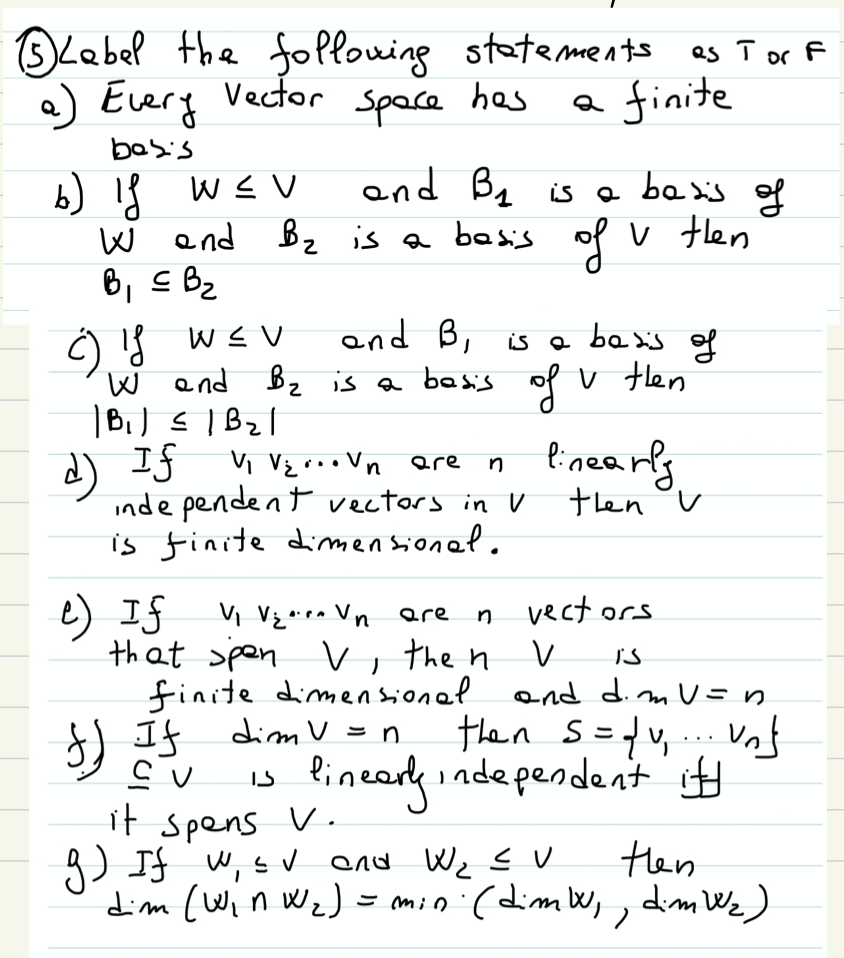 ⑤ Label the following statements as T or F
a) Every Vector space has a finite
basis
b) If W ≤ V and B₁ is a basis of
W and B₂ is a basis of V then
B₁ ⊆ B₂
c) If W ≤ V and B₁ is a basis of
W and B₂ is a basis of V then
|B₁| ≤ |B₂|
d) If V₁ V₂ ... Vn are n linearly
independent vectors in V then V
is finite dimensional.
e) If V₁ V₂ .... Vn are n vectors
that span V, then V is
finite dimensional and dim V = n
f) If dim V = n then S = {V₁ ... Vn}
⊆ V is linearly independent iff
it spans V.
g) If W₁ ≤ V and W₂ ≤ V then
dim (W₁ ∩ W₂) = min (dim W₁, dim W₂)